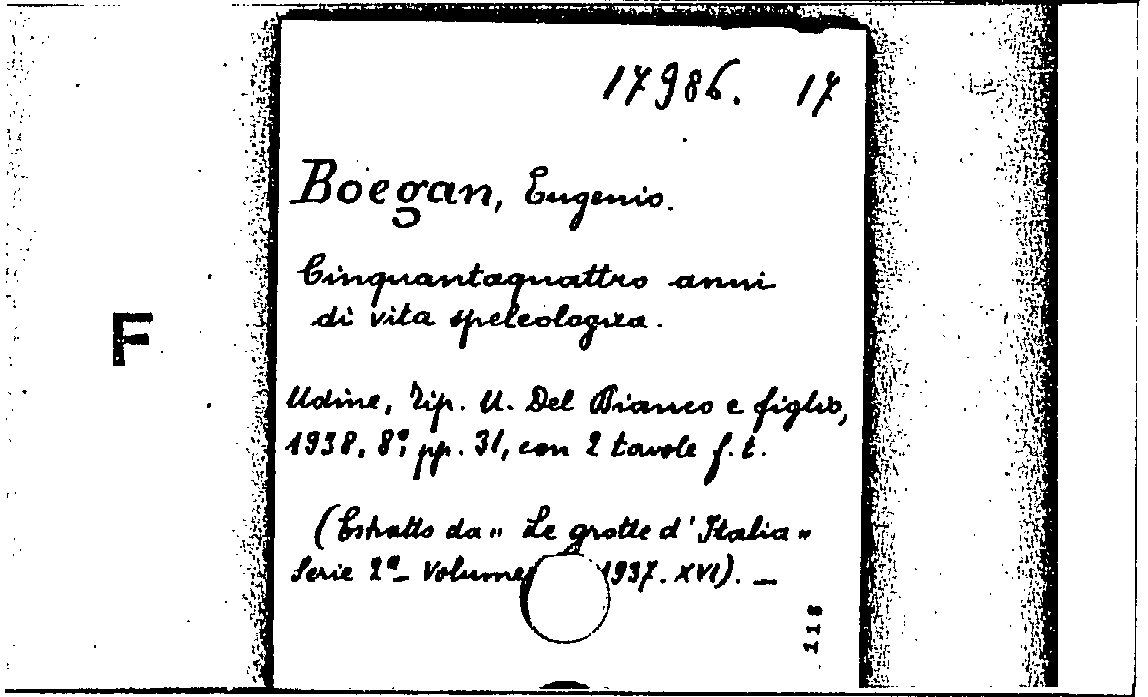 17986. 17
Boegan, Eugenio.
Cinquantaquattro anni
di vita speleologica.
F
Udine, Tip. U. Del Bianco e figlio,
1938, 8°, pp. 31, con 2 tavole f. t.
(Estratto da " Le grotte d'Italia "
Serie 2ª - Volume 1937. XVI). —
118